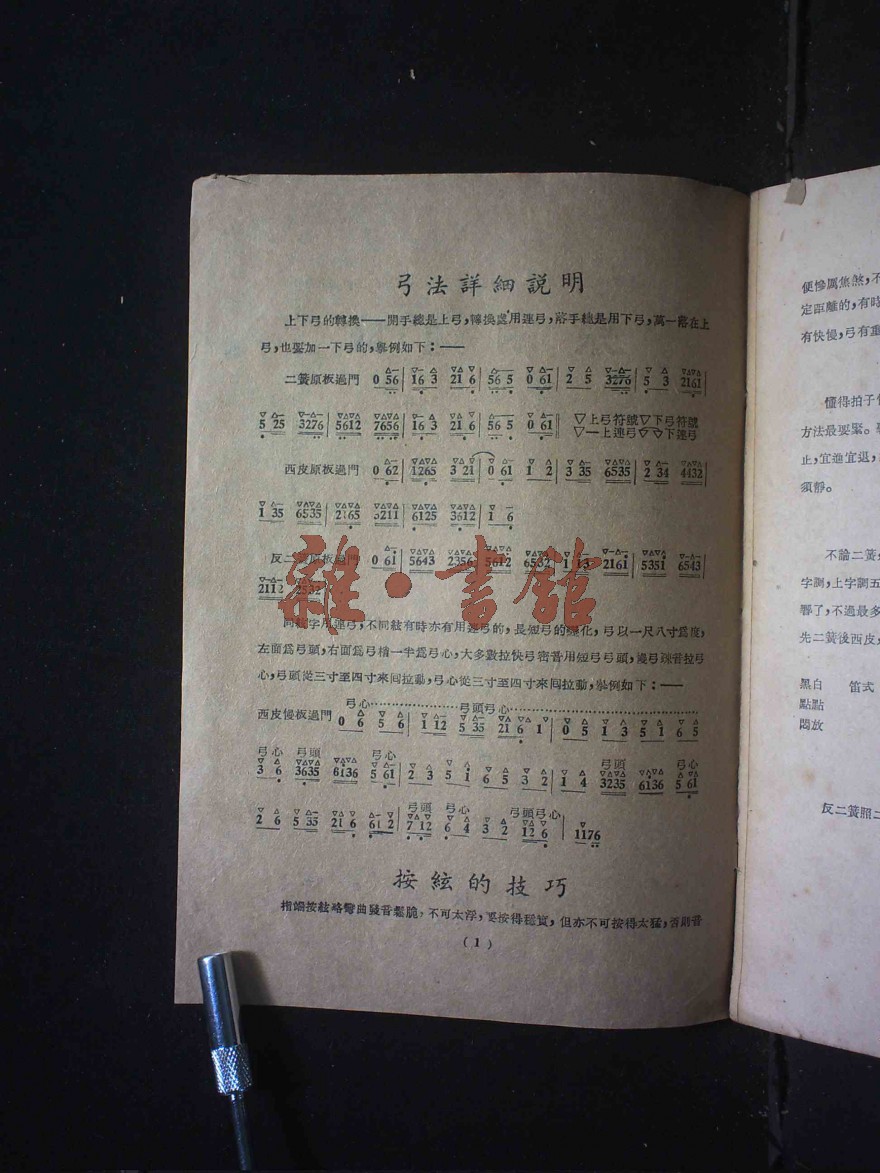 弓法詳細説明
上下弓的轉換——開手總是上弓,轉換處用連弓,落手總是用下弓,萬一落在上
弓,也要加一下弓的,舉例如下:——
二簧原板過門 0 56 | 16 3 21 6 | 56 5 0 61 | 2 5 3276 | 5 3 2161 |
5 25 3276 | 5612 7656 | 16 3 21 6 | 56 5 0 61 ‖ ▽上弓符號▽下弓符號
▽一上連弓 下連弓
西皮原板過門 0 62 | 1265 3 21 | 0 61 1 2 | 3 35 6535 | 2 34 4432 |
1 35 6535 | 2165 3211 | 6125 3612 | 1 6
反二簧原板過門 0 61 | 5643 2356 | 5612 6532 | 1 13 2161 | 5351 6543 |
2112 2532
雜·書館
同絃字用連弓,不同絃有時亦有用連弓的,長短弓的變化,弓以一尺八寸爲度,
左面爲弓頭,右面爲弓梢一半爲弓心,大多數拉快弓密音用短弓弓頭,慢弓疎音拉弓
心,弓頭從三寸至四寸來囘拉動,弓心從三寸至四寸來囘拉動,舉例如下:——
弓心 弓頭弓心
西皮慢板過門 0 6 5 6 | 1 12 5 35 21 6 1 | 0 5 1 3 5 1 6 5
弓心 弓頭 弓心 弓頭 弓心
3 6 3635 6136 5 61 | 2 3 5 1 6 5 3 2 | 1 4 3235 6136 5 61
弓頭 弓心 弓頭弓心
2 6 5 35 21 6 61 2 | 7 12 6 4 3 2 12 6 | 1176
按絃的技巧
指端按絃略彎曲發音鬆脆,不可太浮,要按得穩實,但亦不可按得太猛,否則音
(1)
便慘厲焦煞,不
定距離的,有時
有快慢,弓有重
懂得拍子
方法最要緊。
止,宜進宜退,
須靜。
不論二簧
字調,上字調五
響了,不過最多
先二簧後西皮,
黑白 笛式
點點
悶放
反二簧照二